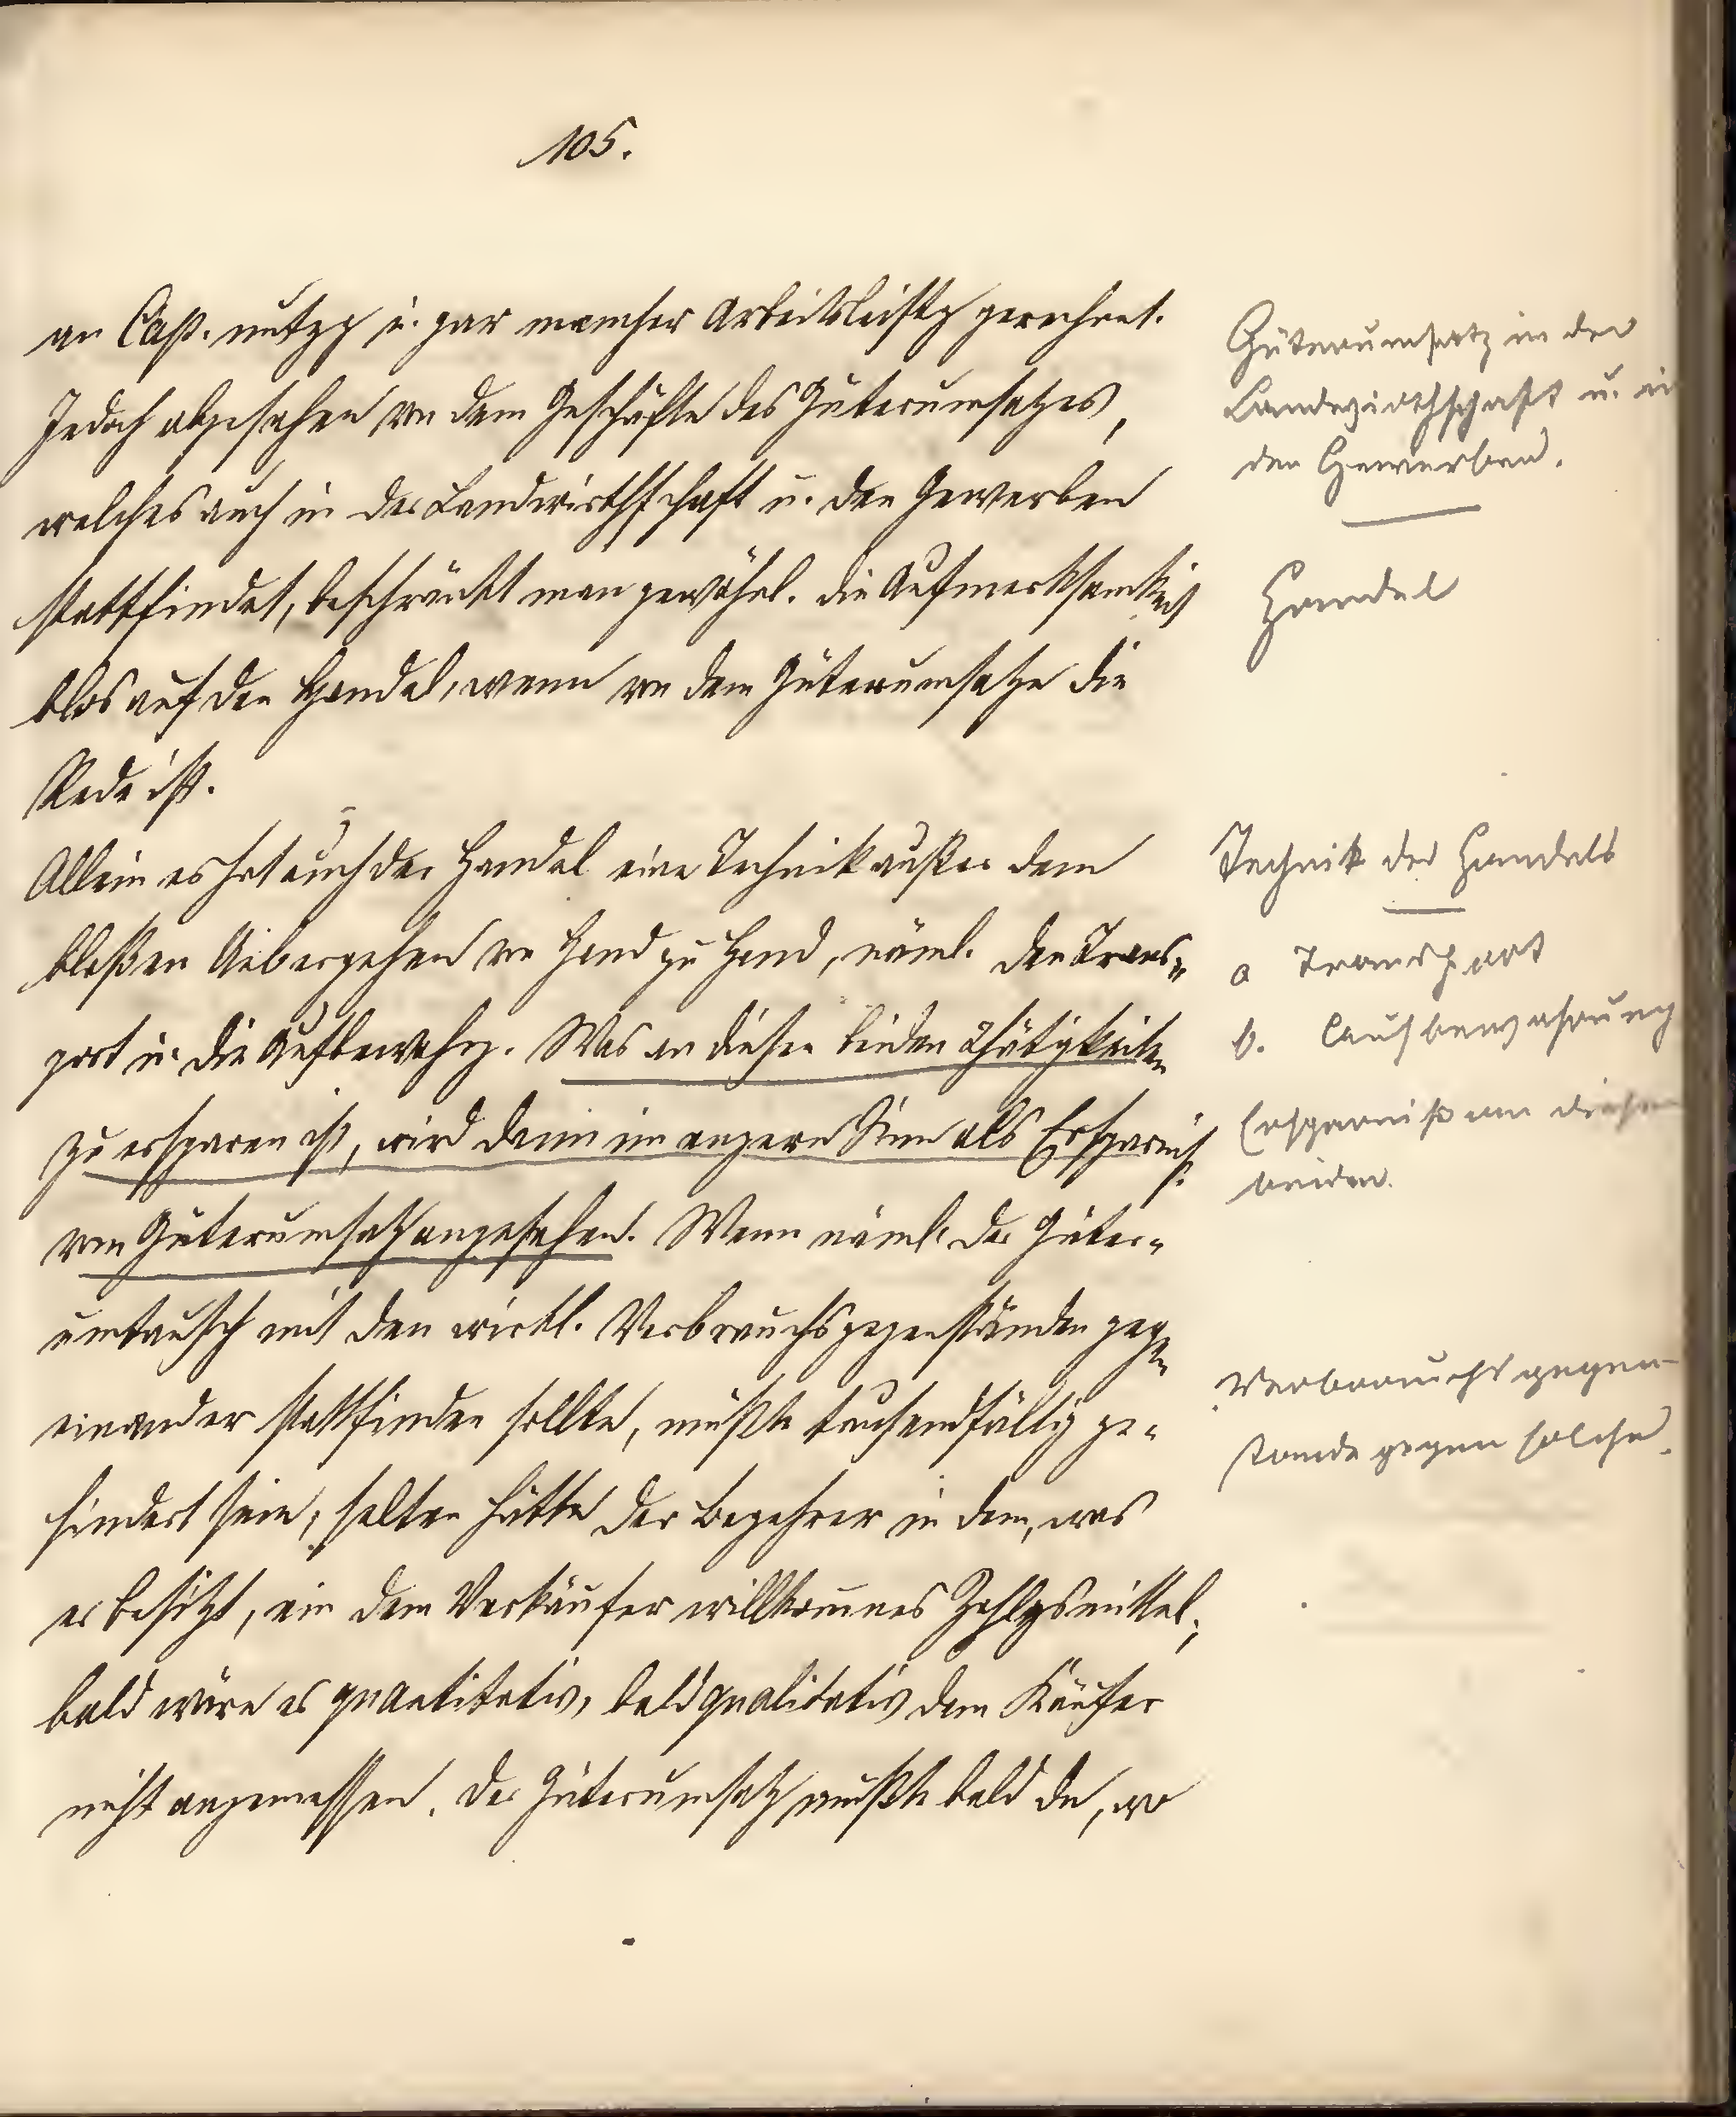 105.
an Cap. nutzg u. gar mancher Arbeitsleistg gerechnet.
Jedoch abgesehen von dem Geschäfte des Güterumsatzes,
welches auch in der Landwirthschaft u. den Gewerben
stattfindet, beschränkt man gewöhnl. die Aufmerksamkeit
blos auf den Handel, wenn von dem Güterumsatze die
Rede ist.
Allein es hat auch der Handel eine Technik außer dem
bloßen Uebergehen von Hand zu Hand, näml. den Trans„
port u. die Aufbewahrg. Was an diesen beiden Thätigkeiten
zu ersparen ist, wird dann im engern Sinn als Ersparniß
vom Güterumsatz angesehen. Wenn näml. der Güter„
umtausch mit den wirkl. Verbrauchsgegenständen gegen„
einander stattfinden sollte, müßte tausendfältig ge„
hindert sein; selten hätte der Begehrer in dem, was
er besitzt, ein dem Verkäufer willkommnes Zahlgsmittel;
bald wäre es quantitativ, bald qualitativ dem Käufer
nicht angemessen. Der Güterumsatz müßte bald da, wo
Güterumsatz in der
Landwirthschaft u. in
den Gewerben.
Handel
Technik des Handels
a Transport
b. Aufbewahrung
Ersparniß an diesen
beiden.
Verbrauchsgegen-
stände gegen solche.